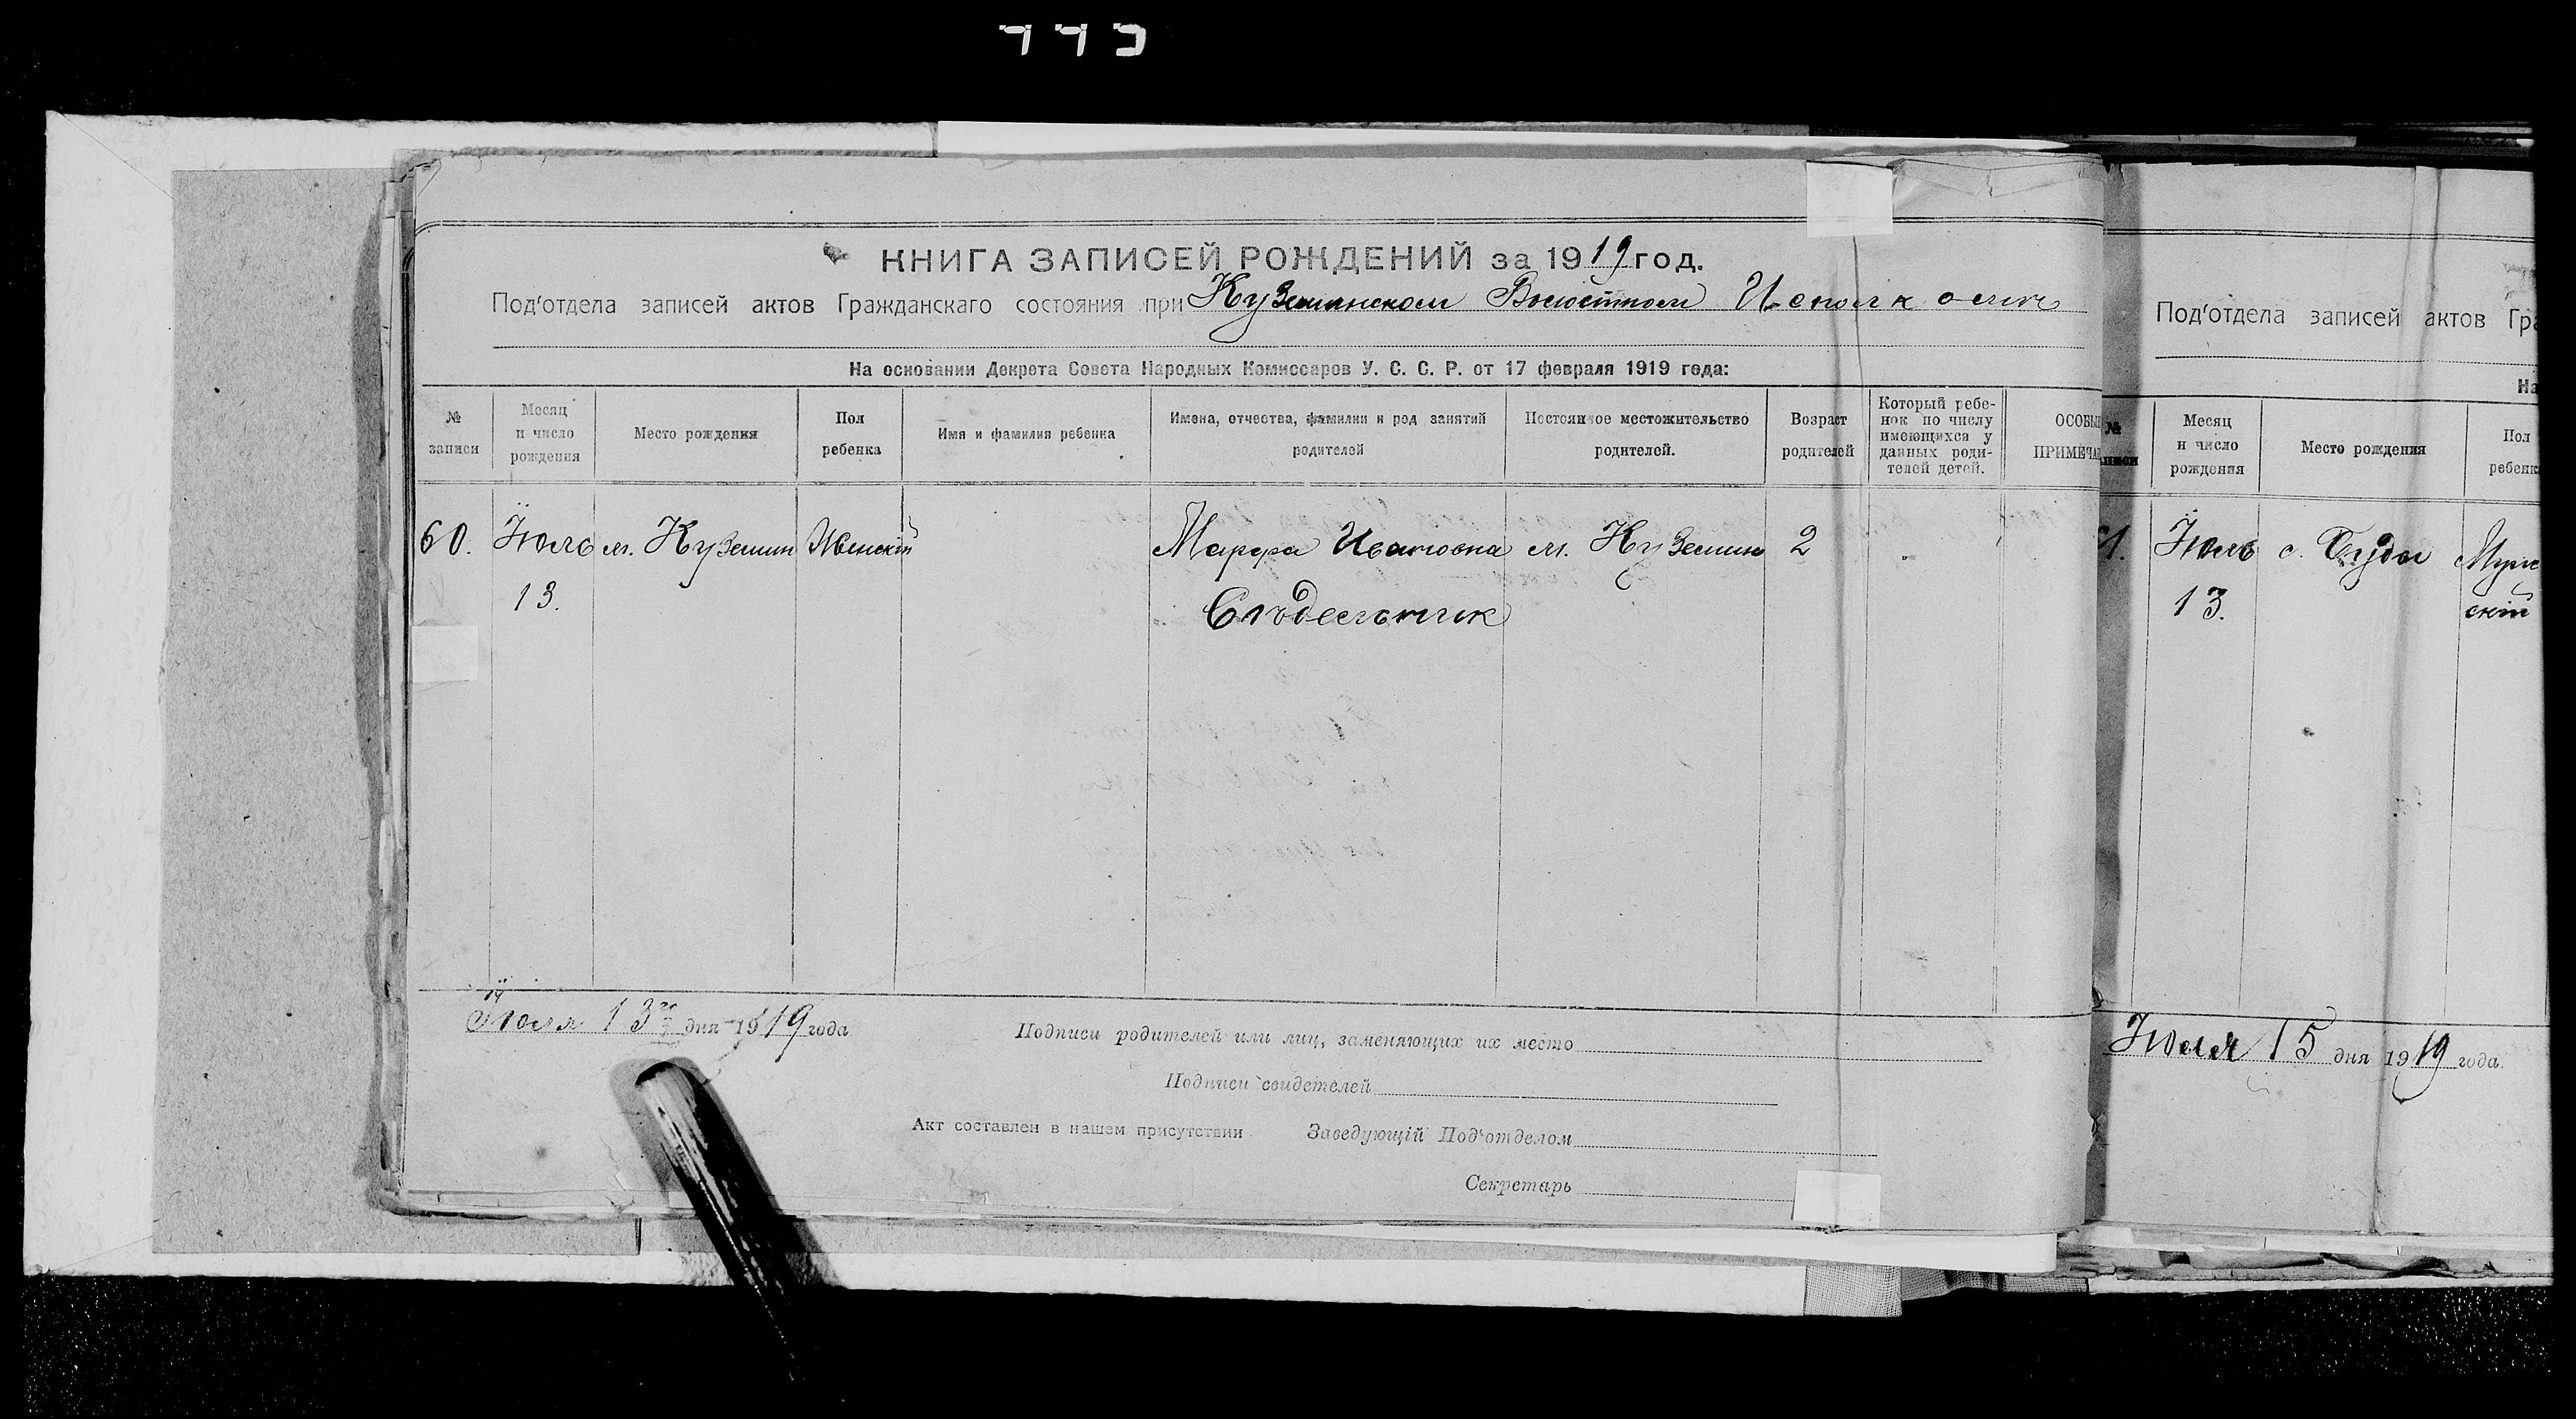 КНИГА ЗАПИСЕЙ РОЖДЕНИЙ за 1919 год.
Под'отдела записей актов Гражданскаго состояния при Куземинском Волостном Исполкоме
На основании Декрета Совета Народных Комиссаров У. С. С. Р. от 17 февраля 1919 года:
№ записи
Месяц и число рождения
Место рождения
Пол ребенка
Имя и фамилия ребенка
Имена, отчества, фамилии и род занятий родителей
Постоянное местожительство родителей.
Возраст родителей
Который ребенок по числу имеющихся у данных родителей детей.
ОСОБЫ
ПРИМЕЧА
60. Їюль м. Куземин Женскій Марфа Ивановна м. Куземин 2
13.
Июля 13 дня 1919 года
Подписи родителей или лиц, заменяющих их место
Подписи свидетелей
Акт составлен в нашем присутствии Заведующій Под'отделом
Секретарь
Под'отдела записей актов Гра
На
№
Месяц и число рождения
Место рождения
Пол ребенк
Їюль с. Буды Муж
13. скій
Їюля 15 дня 1919 года.